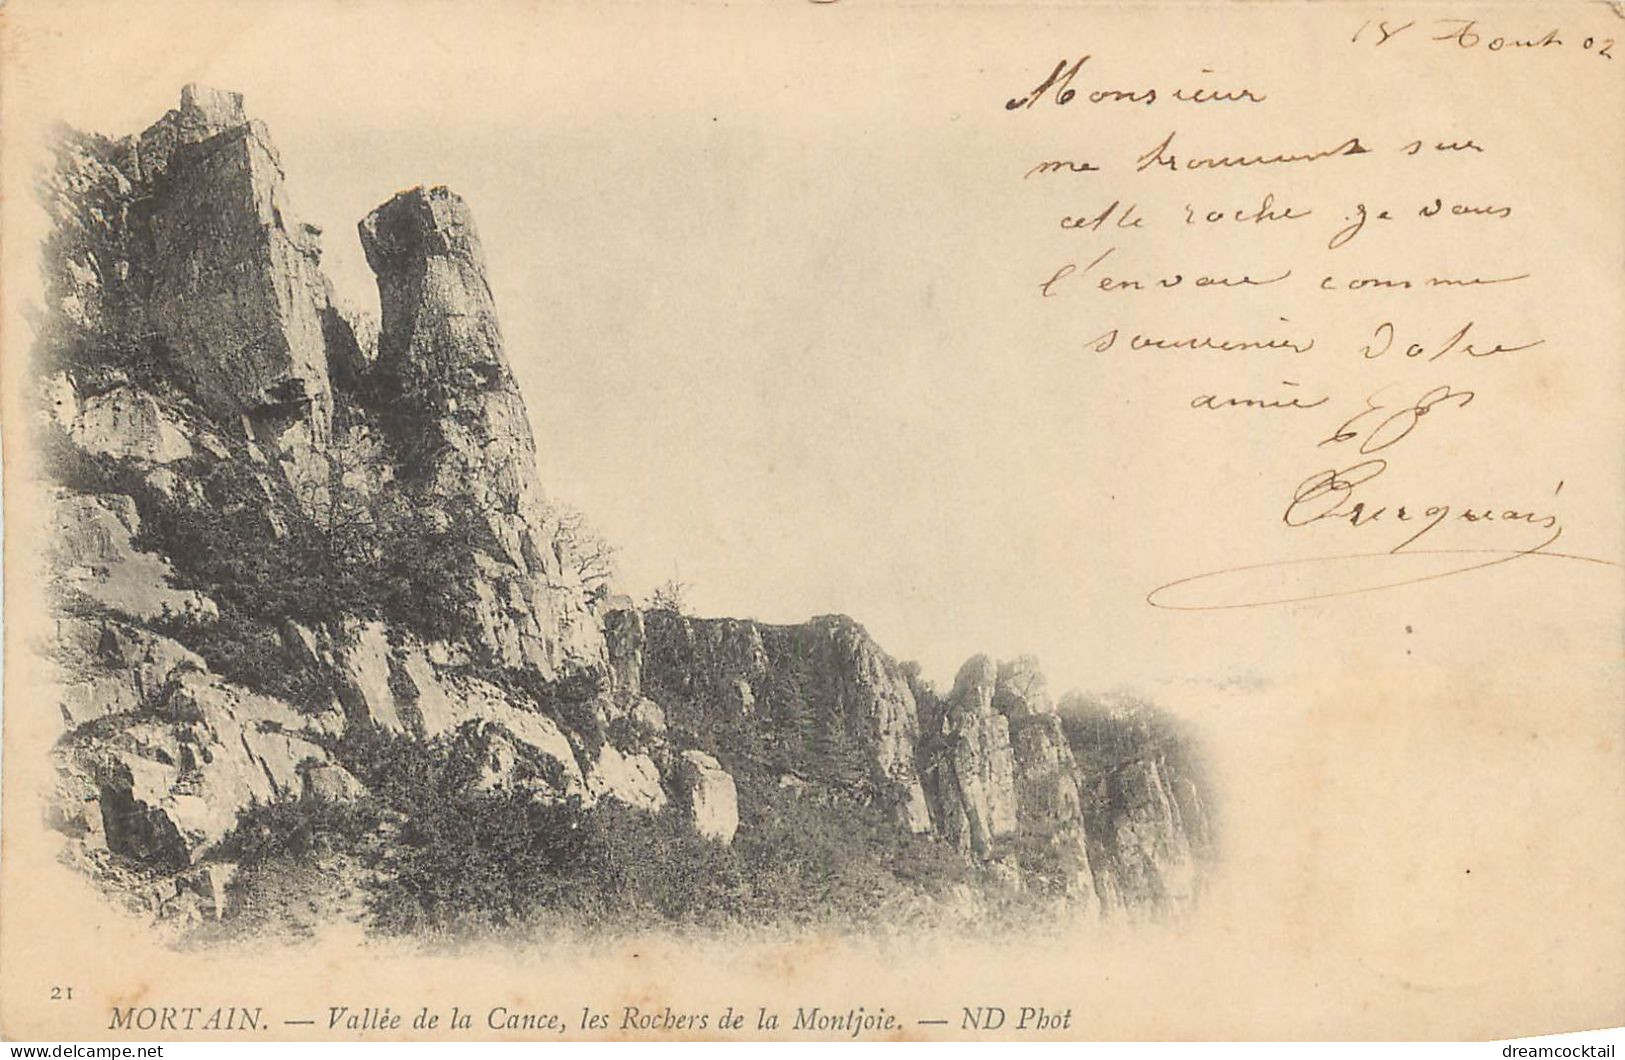 18 Aout 02
Monsieur
me trouvant sur
cette roche je vous
l'envoie comme
souvenir Votre
amie
21
MORTAIN. — Vallée de la Cance, les Rochers de la Montjoie. — ND Phot
dreamcocktail